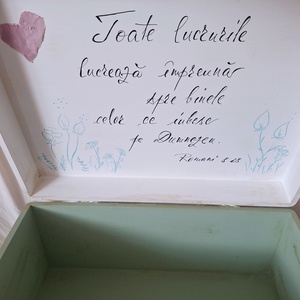 Toate lucrurile
lucrează împreună
spre binele
celor ce iubesc
pe Dumnezeu.
Romani 8:28